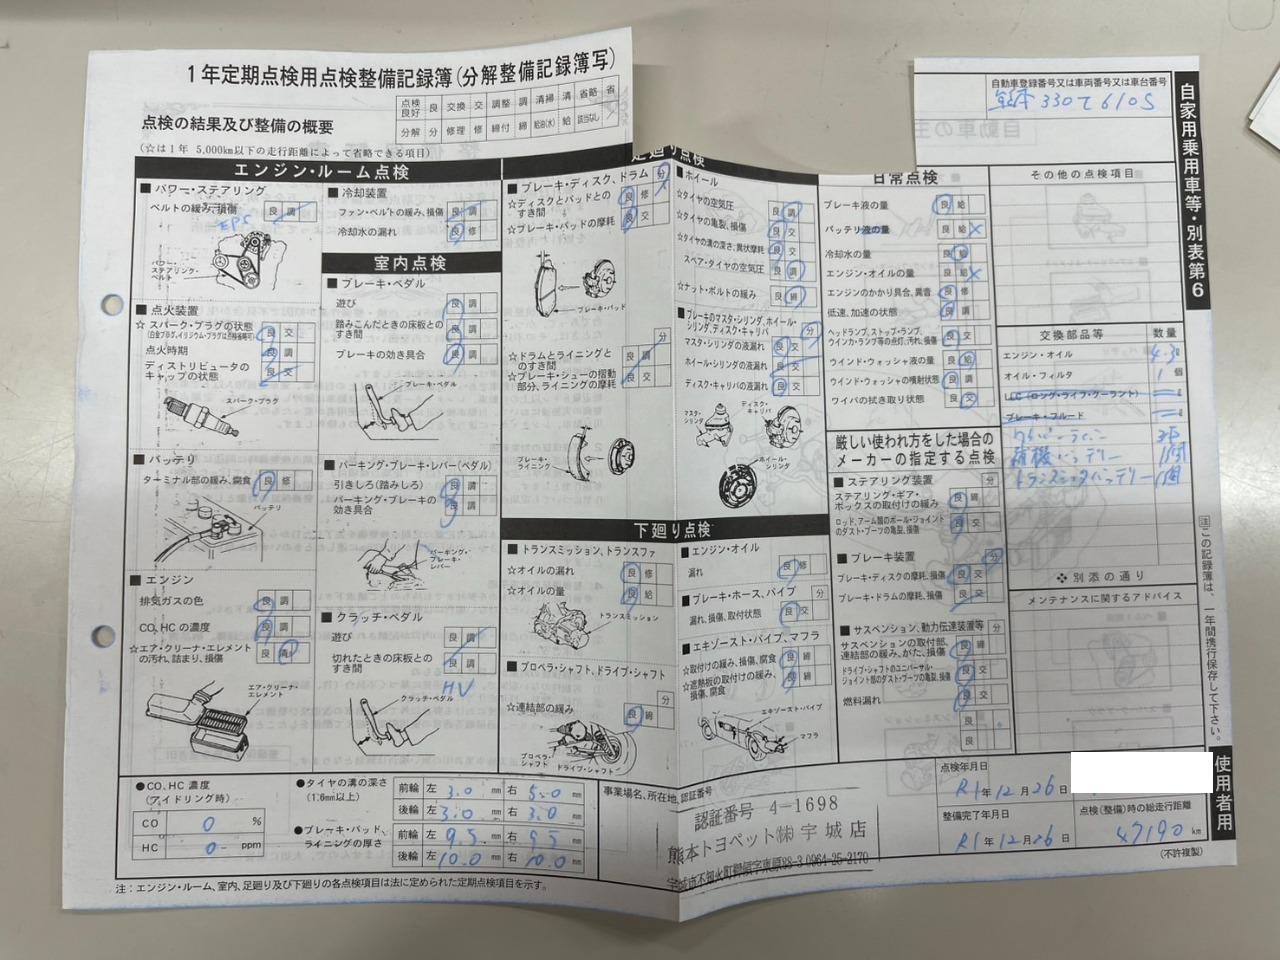 1年定期点検用点検整備記録簿(分解整備記録簿写)
点検の結果及び整備の概要
(☆は1年 5,000km以下の走行距離によって省略できる項目)
点検良好 良 交換 交 調整 調 清掃 清 省略 省
分解 分 修理 修 締付 締 給油(水) 給 該当なし
自動車登録番号又は車両番号又は車台番号
熊本 330 て 6105
自家用乗用車等・別表第6
エンジン・ルーム点検
■パワー・ステアリング
ベルトの緩み、損傷 良 調
EPS
パワー・ステアリング・ベルト
■点火装置
☆スパーク・プラグの状態 良 交
(白金プラグ、イリジウム・プラグは点検省略可)
点火時期 良 調
ディストリビュータのキャップの状態 良 交
スパーク・プラグ
■バッテリ
ターミナル部の緩み、腐食 良 修
バッテリ
■エンジン
排気ガスの色 良 調
CO、HCの濃度 良 調
☆エア・クリーナ・エレメントの汚れ、詰まり、損傷 良 清
エア・クリーナ・エレメント
■冷却装置
ファン・ベルトの緩み、損傷 良 調
冷却水の漏れ 良 修
室内点検
■ブレーキ・ペダル
遊び 良 調
踏みこんだときの床板とのすき間 良 調
ブレーキの効き具合 良 調
ブレーキ・ペダル
■パーキング・ブレーキ・レバー(ペダル)
引きしろ(踏みしろ) 良 調
パーキング・ブレーキの効き具合 良 調
パーキング・ブレーキ・レバー
■クラッチ・ペダル
遊び 良 調
切れたときの床板とのすき間 良 調
HV
クラッチ・ペダル
足廻り点検
■ブレーキ・ディスク、ドラム 分
☆ディスクとパッドとのすき間 良 修
☆ブレーキ・パッドの摩耗 良 交
ブレーキ・パッド
分
☆ドラムとライニングとのすき間 良 調
☆ブレーキ・シューの摺動部分、ライニングの摩耗 良 交
ブレーキ・ライニング
■ホイール
☆タイヤの空気圧 良 調
☆タイヤの亀裂、損傷 良 交
☆タイヤの溝の深さ、異状摩耗 良 交
スペア・タイヤの空気圧 良 調
☆ナット・ボルトの緩み 良 締
■ブレーキのマスタ・シリンダ、ホイール・シリンダ、ディスク・キャリパ 分
マスタ・シリンダの液漏れ 良 交
ホイール・シリンダの液漏れ 良 交
ディスク・キャリパの液漏れ 良 交
マスタ・シリンダ
ディスク・キャリパ
ホイール・シリンダ
下廻り点検
■トランスミッション、トランスファ
☆オイルの漏れ 良 修
☆オイルの量 良 給
トランスミッション
■プロペラ・シャフト、ドライブ・シャフト
分
☆連結部の緩み 良 締
プロペラ・シャフト
ドライブ・シャフト
■エンジン・オイル
漏れ 良 修
■ブレーキ・ホース、パイプ 分
漏れ、損傷、取付状態 良 交
■エキゾースト・パイプ、マフラ
☆取付けの緩み、損傷、腐食 良 締
☆遮熱板の取付けの緩み、損傷、腐食 良 締
エキゾースト・パイプ
マフラ
日常点検
ブレーキ液の量 良 給
バッテリ液の量 良 給
冷却水の量 良 給
エンジン・オイルの量 良 給
エンジンのかかり具合、異音 良 修
低速、加速の状態 良 調
ヘッドランプ、ストップ・ランプ、ウインカ・ランプ等の点灯、汚れ、損傷 良 交
ウインド・ウォッシャ液の量 良 給
ウインド・ウォッシャの噴射状態 良 調
ワイパの拭き取り状態 良 交
厳しい使われ方をした場合のメーカーの指定する点検
■ステアリング装置 分
ステアリング・ギア・ボックスの取付けの緩み 良 締
ロッド、アーム類のボール・ジョイントのダスト・ブーツの亀裂、損傷 良 交
■ブレーキ装置 分
ブレーキ・ディスクの摩耗、損傷 良 交
ブレーキ・ドラムの摩耗、損傷 良 交
■サスペンション、動力伝達装置等 分
サスペンションの取付部、連結部の緩み、がた、損傷 良 締
ドライブ・シャフトのユニバーサル・ジョイント部のダスト・ブーツの亀裂、損傷 良 交
燃料漏れ 良 交
良
良
その他の点検項目
交換部品等 数量
エンジン・オイル 4.3 ℓ
オイル・フィルタ 1 個
LLC(ロング・ライフ・クーラント) ℓ
ブレーキ・フルード ℓ
補機バッテリー 1個
バッテリー 1個
❖別添の通り
メンテナンスに関するアドバイス
注 この記録簿は、一年間携行保存して下さい。
使用者用
●CO、HC濃度(アイドリング時)
CO 0 %
HC 0 ppm
●タイヤの溝の深さ(1.6mm以上)
前輪 左 3.0 mm 右 5.0 mm
後輪 左 3.0 mm 右 3.0 mm
●ブレーキ・パッド、ライニングの厚さ
前輪 左 9.5 mm 右 9.5 mm
後輪 左 10.0 mm 右 10.0 mm
事業場名、所在地、認証番号
認証番号 4-1698
熊本トヨペット㈱宇城店
宇城市不知火町御領字東原88-3 0964-25-2170
点検年月日
R1年12月26日
整備完了年月日
R1年12月26日
点検(整備)時の総走行距離
47190 km
(不許複製)
注:エンジン・ルーム、室内、足廻り及び下廻りの各点検項目は法に定められた定期点検項目を示す。